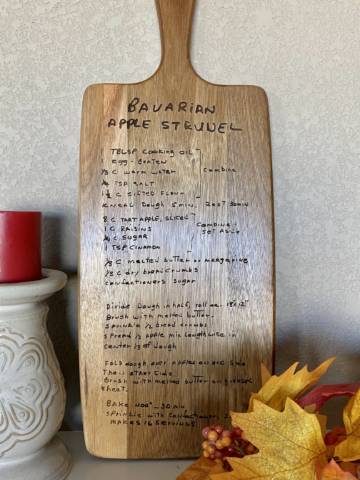 BAVARIAN
APPLE STRUDEL
TBLSP COOKING OIL
EGG - BEATEN
⅓ C WARM WATER COMBINE
¼ TSP SALT
1½ C SIFTED FLOUR
KNEAD DOUGH 5 MIN, REST 30 MIN
8 C TART APPLE, SLICED
1 C RAISINS COMBINE &
C SUGAR SET ASIDE
1 TSP CINAMON
⅓ C MELTED BUTTER OR MARGARINE
½ C DRY BREADCRUMBS
CONFECTIONERS SUGAR
DIVIDE DOUGH IN HALF, ROLL 18x12"
BRUSH WITH MELTED BUTTER
SPRINKLE ½ BREAD CRUMBS
SPREAD ½ APPLE MIX LENGTHWISE IN
CENTER ⅓ OF DOUGH
FOLD DOUGH OVER APPLES ON ONE SIDE
THEN OTHER SIDE.
BRUSH WITH MELTED BUTTER
BAKE 400° - 30 MIN
SPRINKLE WITH CONFECTIONERS
MAKES 16 SERVINGS